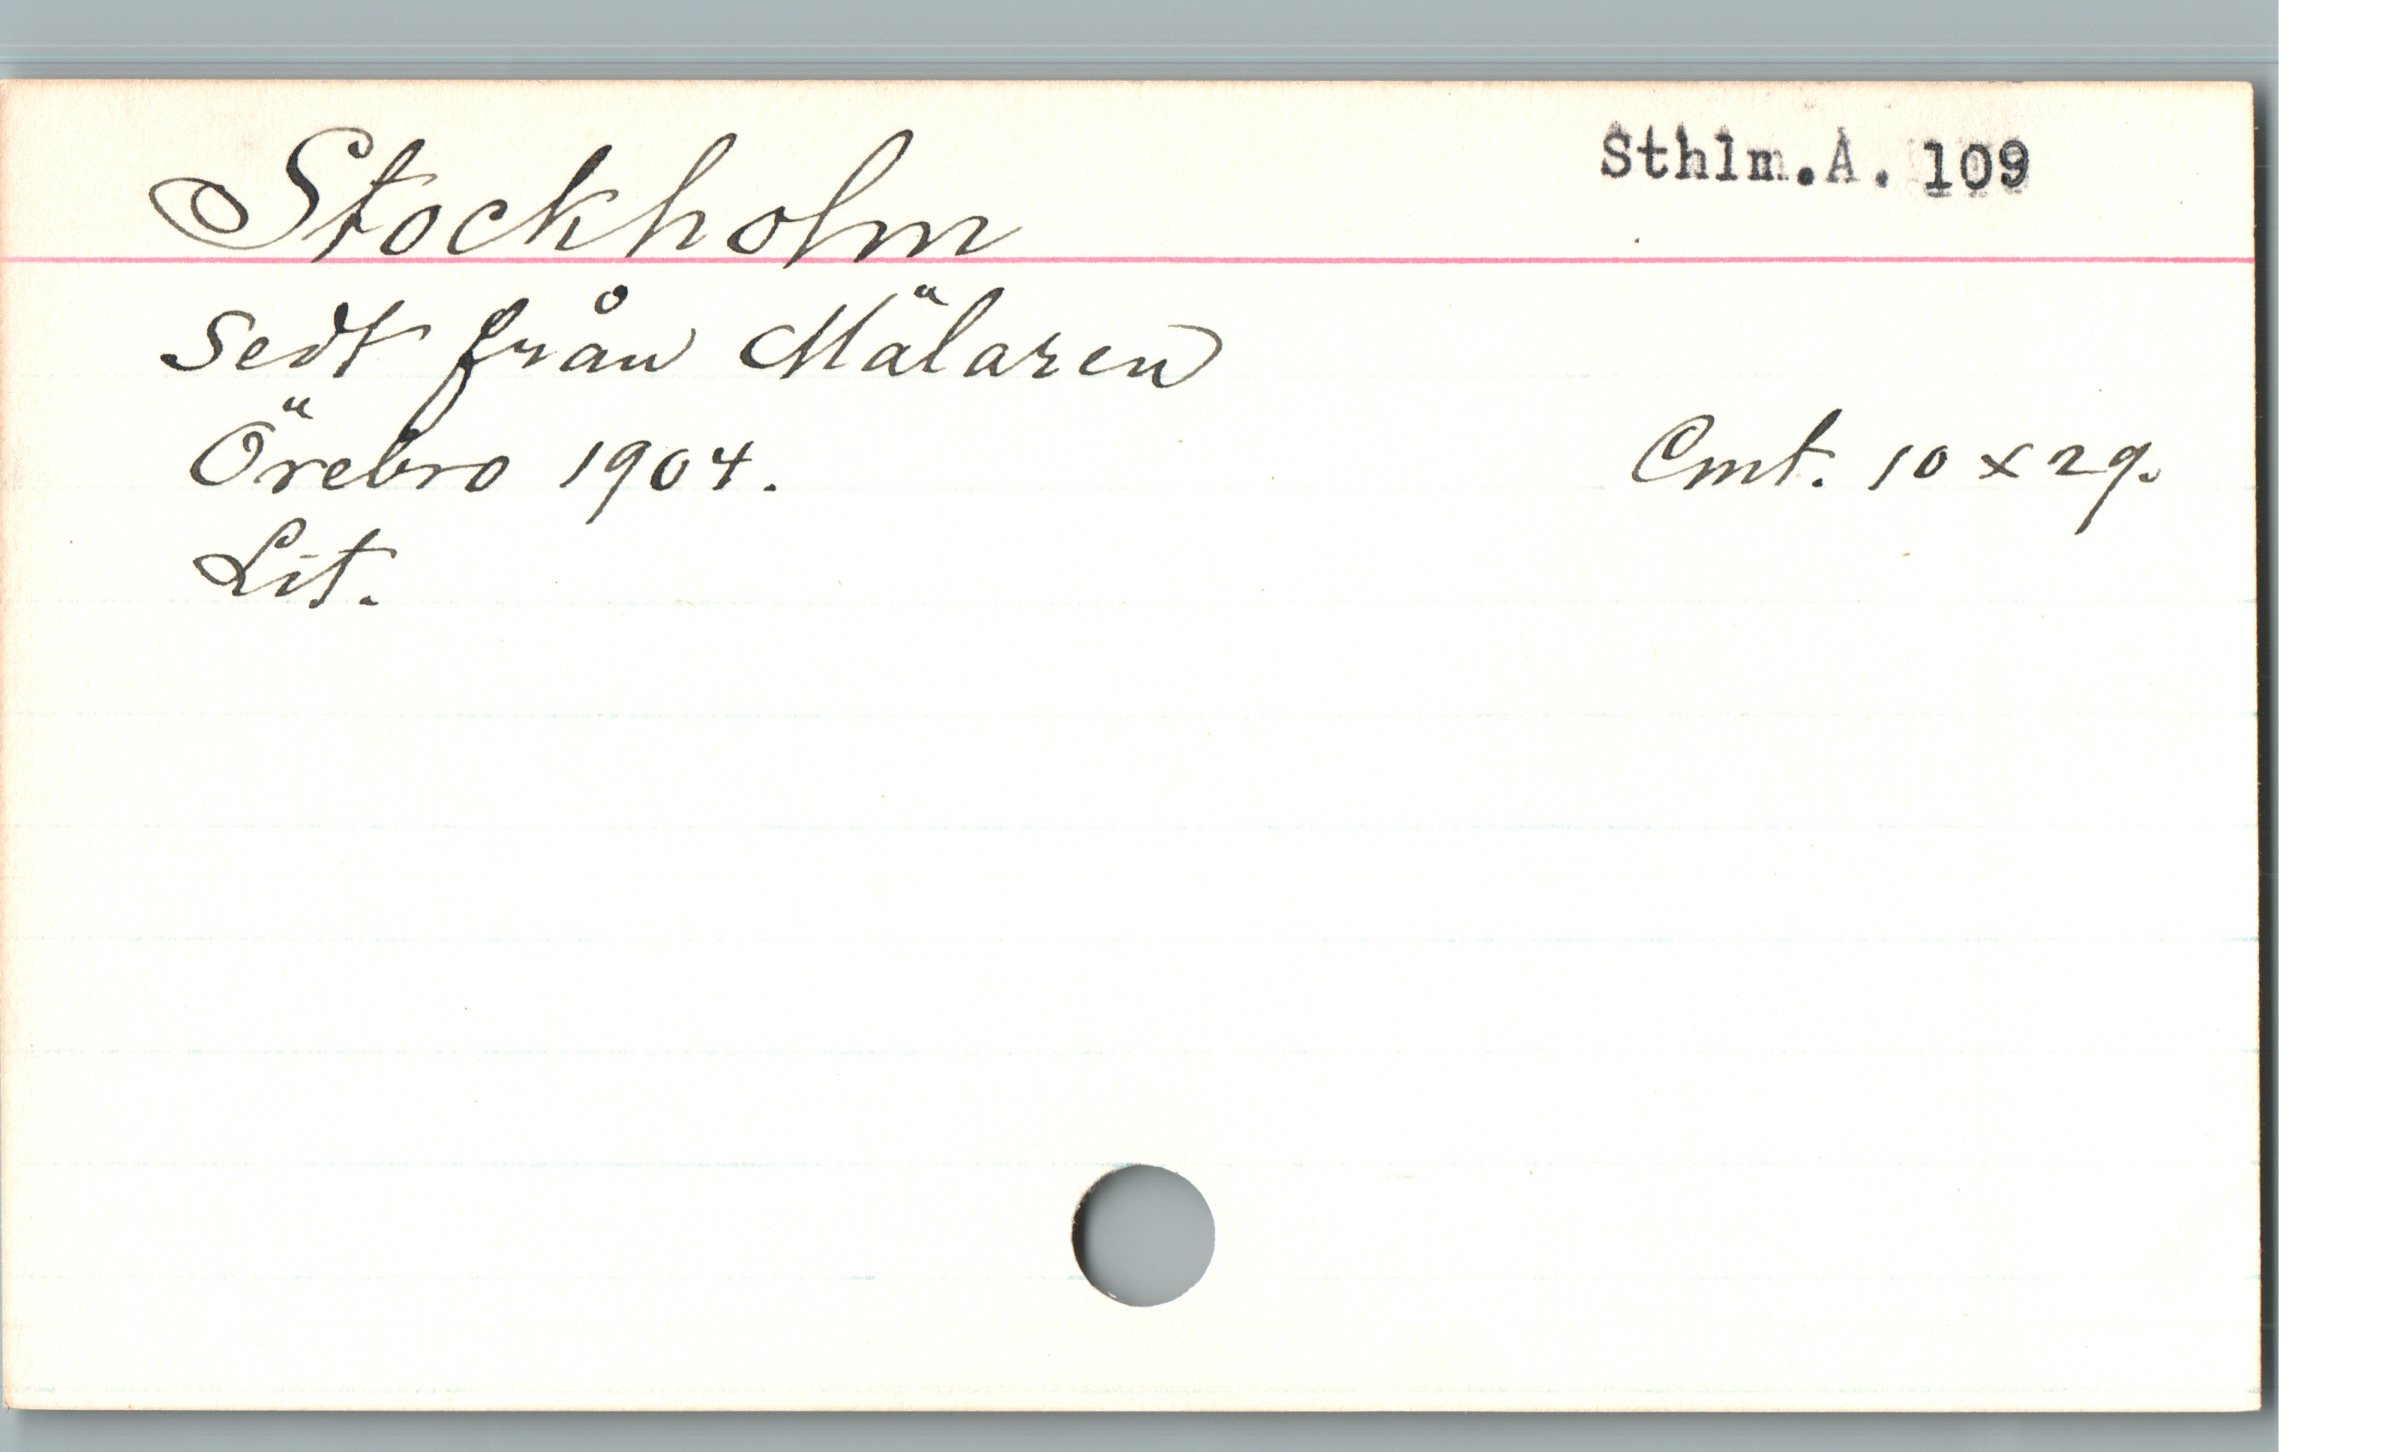 Stockholm
Sthlm.A. 109
sedt från Mälaren
Örebro 1904.
Cmt. 10 x 29.
Lit.